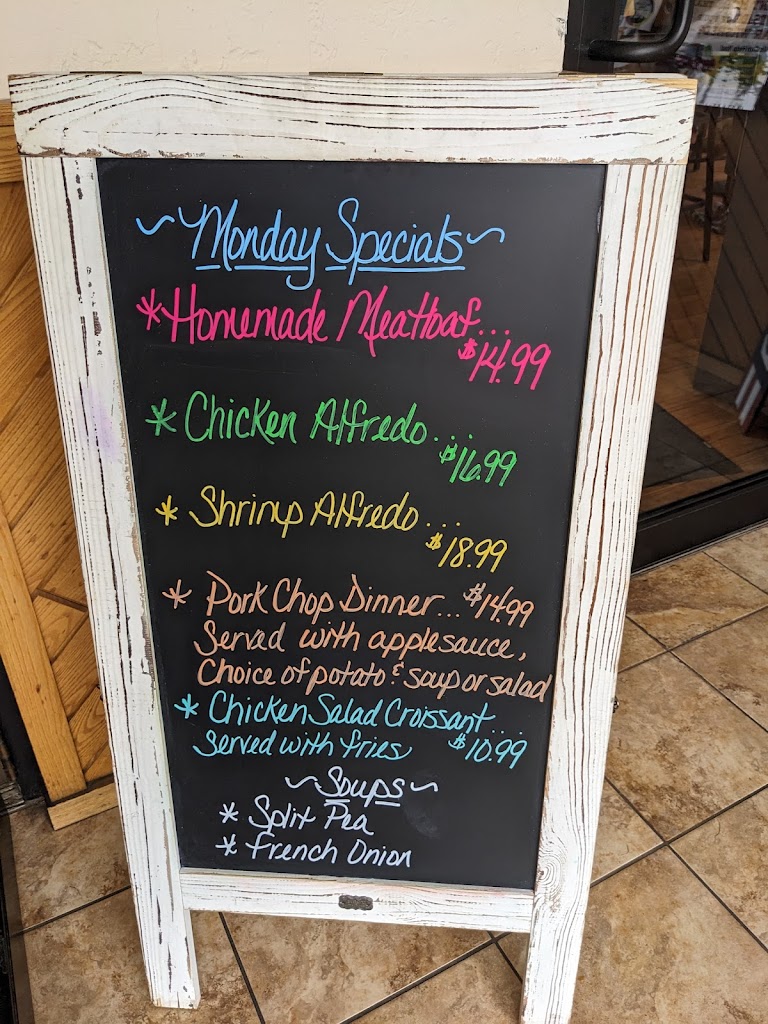 ~Monday Specials~
* Homemade Meatloaf...
$14.99
* Chicken Alfredo...
$16.99
* Shrimp Alfredo...
$18.99
* Pork Chop Dinner... $14.99
Served with applesauce,
Choice of potato & soup or salad
* Chicken Salad Croissant...
Served with fries $10.99
~Soups~
* Split Pea
* French Onion